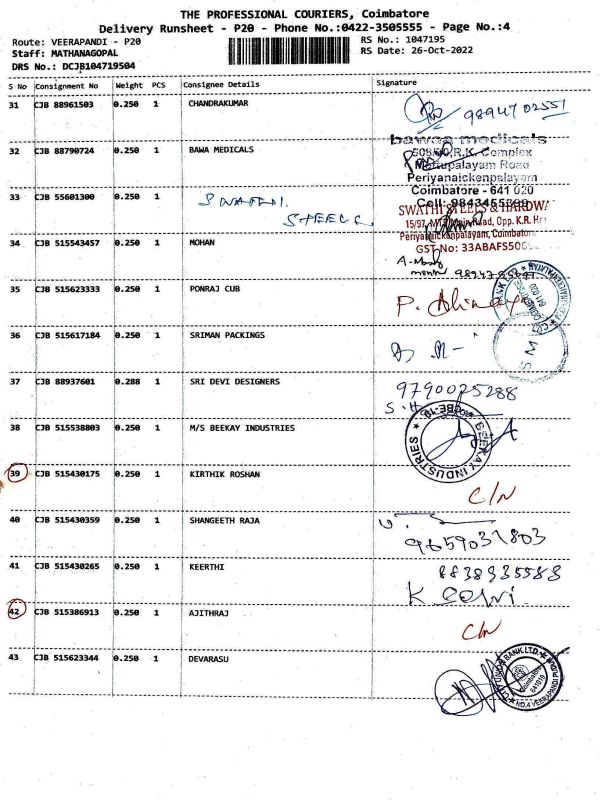 THE PROFESSIONAL COURIERS, Coimbatore
Delivery Runsheet - P20 - Phone No.:0422-3505555 - Page No.:4
Route: VEERAPANDI - P20
RS No.: 1047195
Staff: MATHANAGOPAL
RS Date: 26-Oct-2022
DRS No.: DCJB104719504
S No Consignment No Weight PCS Consignee Details Signature
31 CJB 88961503 0.250 1 CHANDRAKUMAR 9894702551
32 CJB 88790724 0.250 1 BAWA MEDICALS
bawaa medicals
508/50,R.K. Complex
Mettupalayam Road
Periyanaickenpalayam
Coimbatore - 641 020
33 CJB 55601300 0.250 1 SWATHI
STEELS
Cell: 9843455899
SWATHI STEELS & HARDWA
Main Road, Opp. K.R.
Periyanaickenpalayam, Coimbator
GST No: 33ABAFS50
34 CJB 515543457 0.250 1 MOHAN
35 CJB 515623333 0.250 1 PONRAJ CUB
36 CJB 515617184 0.250 1 SRIMAN PACKINGS
37 CJB 88937601 0.288 1 SRI DEVI DESIGNERS 9790025288
38 CJB 515538803 0.250 1 M/S BEEKAY INDUSTRIES
BEEKAY INDUSTRIES ★ CBE-19 ★
39 CJB 515430175 0.250 1 KIRTHIK ROSHAN C/N
40 CJB 515430359 0.250 1 SHANGEETH RAJA
9659031803
41 CJB 515430265 0.250 1 KEERTHI 8838935583
K Selvi.
42 CJB 515386913 0.250 1 AJITHRAJ C/N
43 CJB 515623344 0.250 1 DEVARASU
CITY UNION BANK LTD. NO.4 VEERAPANDI
Coimbatore
641019